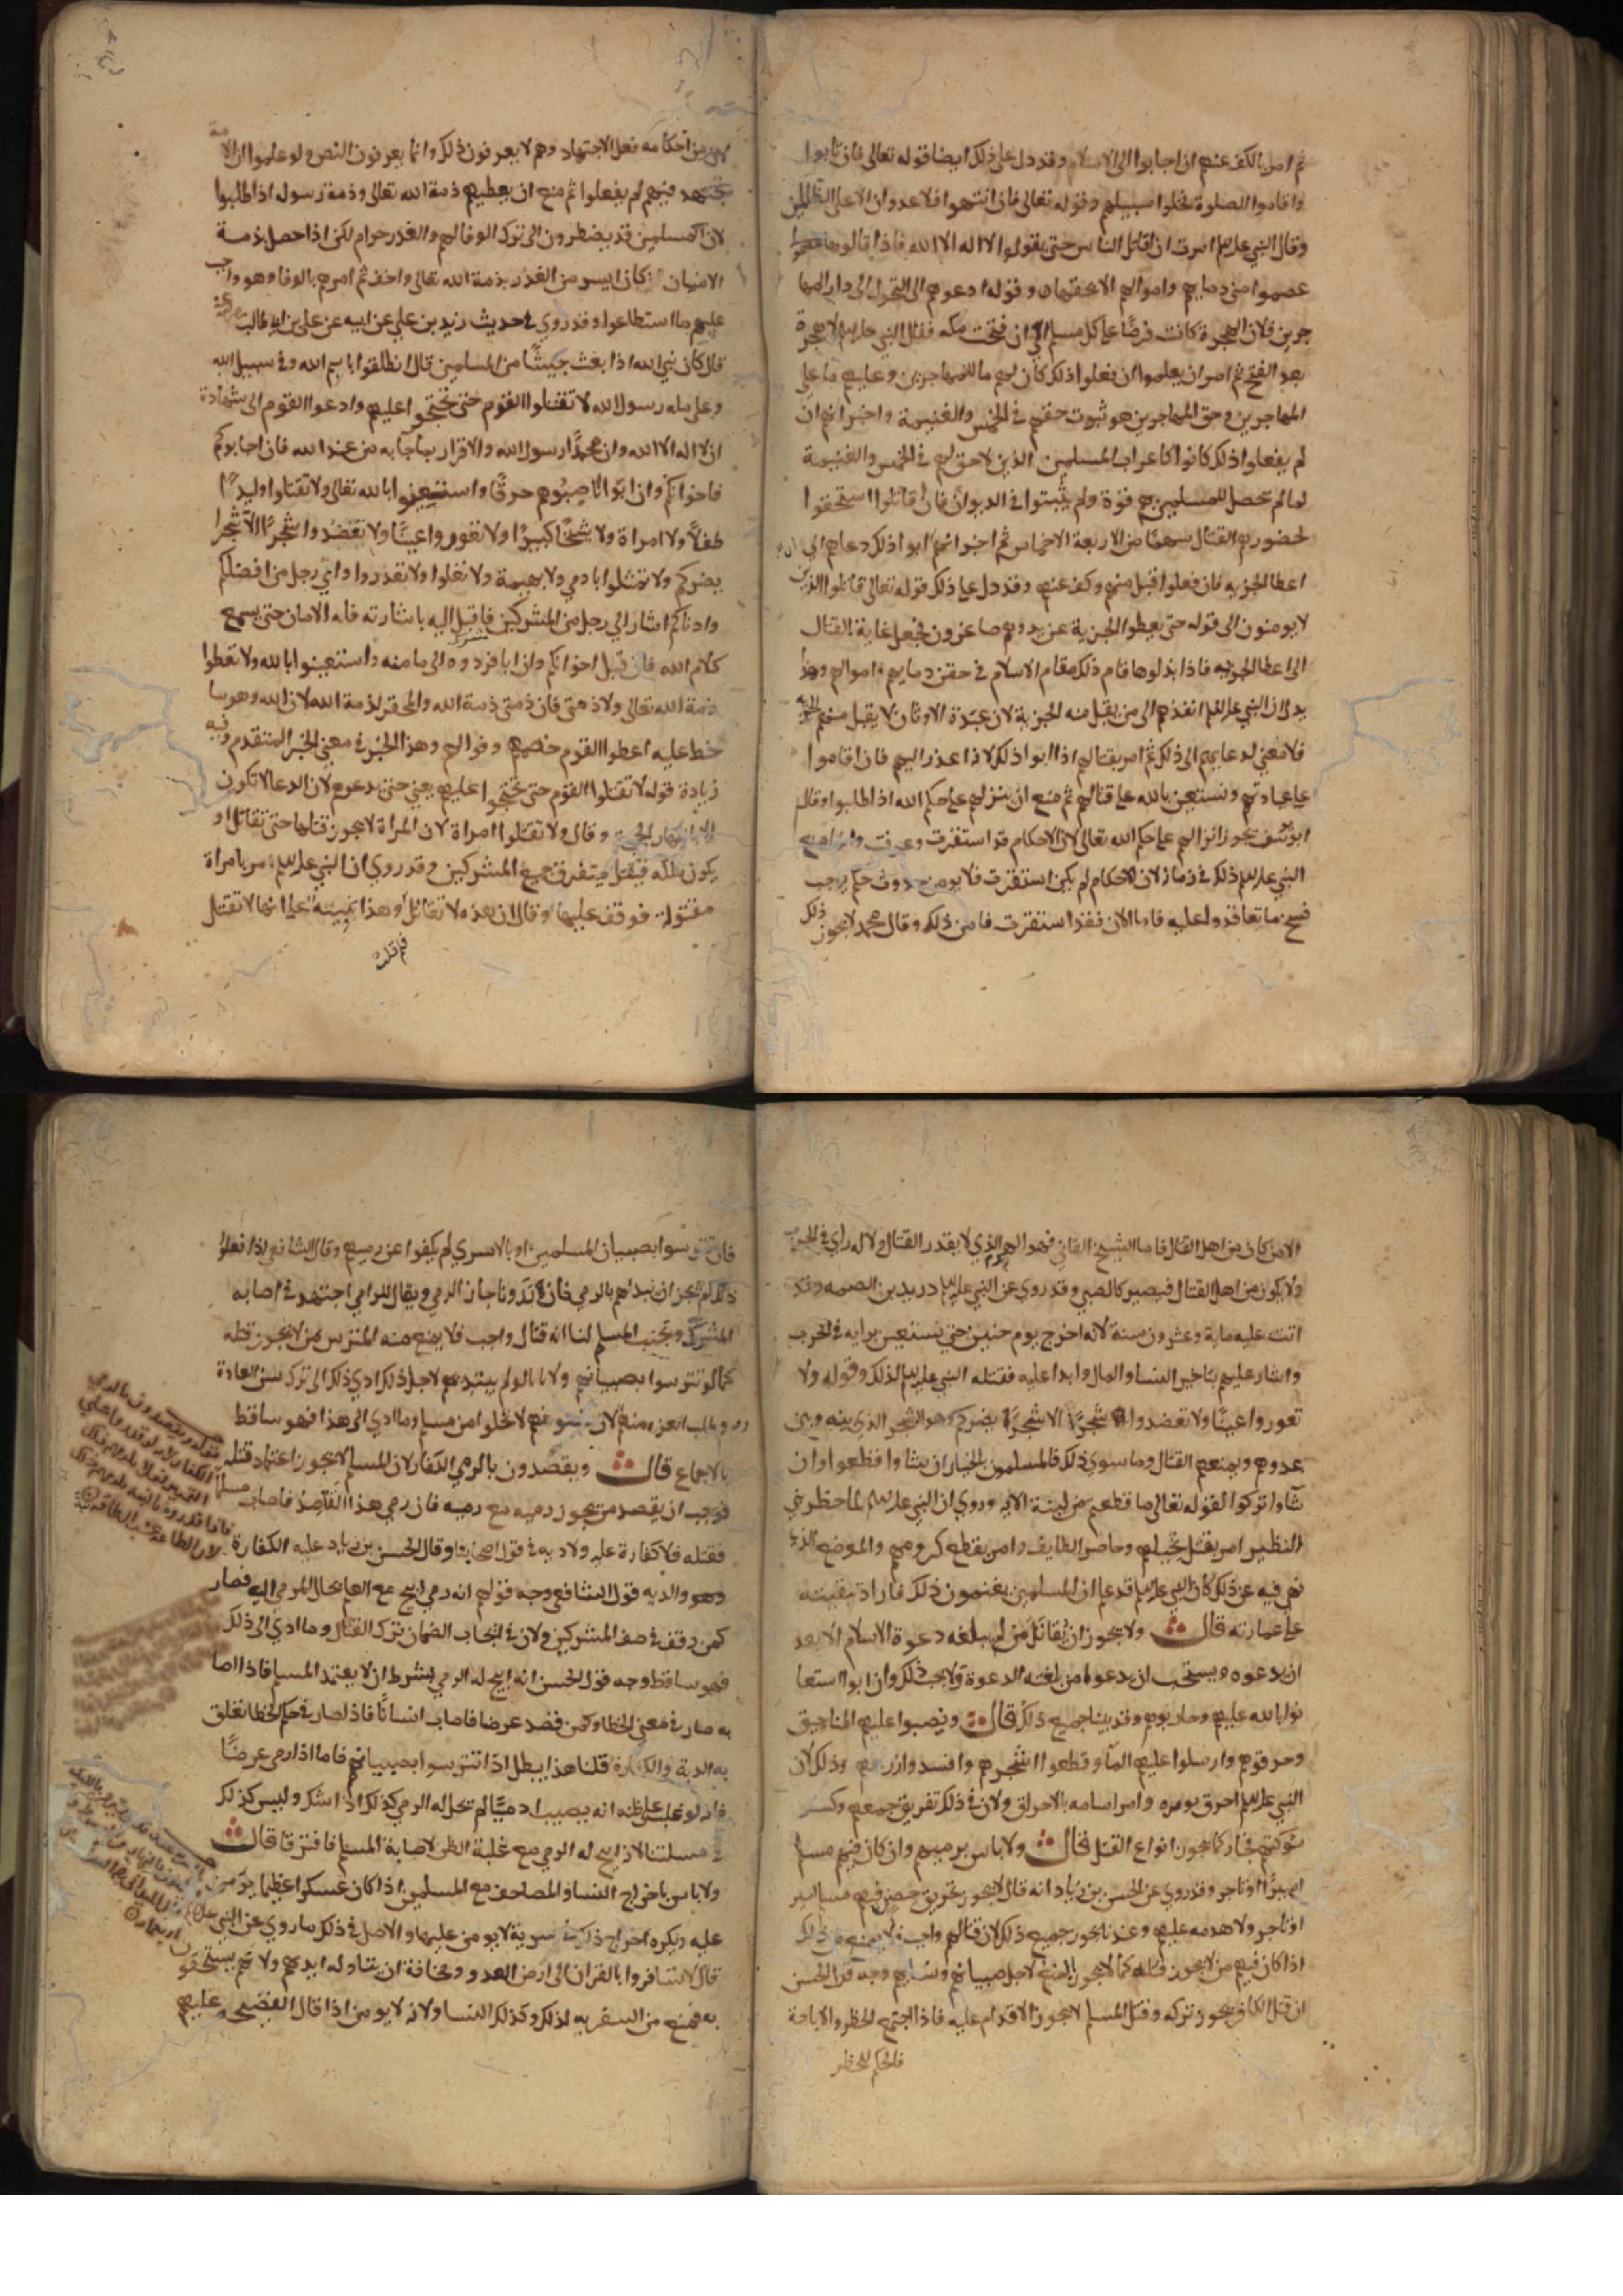 ثم امر بالكف عنهم ان اجابوا الى الاسلام وقد دل على ذلك ايضا قوله تعالى فان تابوا
واقاموا الصلوة فخلوا سبيلهم وقوله تعالى فان انتهوا فلا عدوان الا على الظلمين
وقال النبي عليه السلم امرت ان اقاتل الناس حتى يقولوا لا اله الا الله فاذا قالوها
عصموا مني دماءهم واموالهم الا بحقها وقوله ادعوهم الى التحول الى دار المها
جرين فلان الهجرة كانت فرضًا على كل مسلم الى ان فتحت مكه فقال النبي عليه السلم لا هجرة
بعد الفتح ثم امر ان يعلموا ان فعلوا ذلك كان لهم ما للمهاجرين وعليهم ما على
المهاجرين وحق المهاجرين هو ثبوت حقهم في الخمس والغنيمة واخبر انهم ان
لم يفعلوا ذلك كانوا كاعراب المسلمين الذين لا حق لهم في الخمس والغنيمة
لما لم يحصل للمسلمين بهم قوة ولم يثبتوا في الديوان فان قاتلوا استحقوا
لحضورهم القتال سهمًا من الاربعة الاخماس ثم اخبر انهم ان ابوا ذلك دعاهم الى
اعطا الجزيه فان فعلوا قبل منهم وكف عنهم وقد دل على ذلك قوله تعالى قاتلوا الذين
لا يومنون الى قوله حتى يعطوا الجزية عن يد وهم صاغرون فجعل غاية القتال
الى اعطا الجزيه فاذا بذلوها قام ذلك مقام الاسلام في حقن دمايهم واموالهم وهذا
يدل ان النبي عليه السلم انفذهم الى من يقبل منه الجزية لان عبدة الاوثان لا يقبل منهم الجزيه
فلا معنى لدعايهم الى ذلك ثم امر بقتالهم اذا ابوا ذلك لانه اعذر اليهم فان اقاموا
على عبادتهم ونستعين بالله على قتالهم ثم منع ان ينزلهم على حكم الله اذا طلبوا وقال
ابو يوسف يجوز انزالهم على حكم الله تعالى لان الاحكام قد استقرت وعرفت وانما منع
النبي عليه السلم ذلك في زمانه لان الاحكام لم يكن استقرت فلا يومن حدوث حكم يوجب
فسخ ما تعاقدوا عليه فاما الان فقد استقرت فامن ذلك وقال محمد لا يجوز ذلك
لان من احكامه فعل الاجتهاد وهم لا يعرفون ذلك وانما يعرفون النص ولو علموا ان الامة
تجتهد فيهم لم يفعلوا ثم منع ان يعطيهم ذمة الله تعالى وذمة رسوله اذا طلبوا
لان المسلمين قد يضطرون الى ترك الوفا لهم والغدر حرام لكن اذا حصل بذمة
الانسان كان ايسر من الغدر بذمة الله تعالى واخف ثم امرهم بالوفا وهو واجب
عليهم ما استطاعوا وقد روي في حديث زيد بن علي عن ابيه عن علي بن ابي طالب
قال كان نبي الله اذا بعث جيشًا من المسلمين قال انطلقوا باسم الله وفي سبيل الله
وعلى مله رسول الله لا تقتلوا القوم حتى تحتجوا عليهم وادعوا القوم الى شهادة
ان لا اله الا الله وان محمدًا رسول الله والاقرار بما جا به من عند الله فان اجابوكم
فاخوانكم وان ابوا فناصبوهم حربًا واستعينوا بالله تعالى ولا تقتلوا وليدًا
طفلًا ولا امراة ولا شيخًا كبيرًا ولا تغوروا عينًا ولا تعضدوا شجرًا الا شجرا
يضركم ولا تمثلوا بادمي ولا بهيمة ولا تغلوا ولا تغدروا واي رجل من افضلكم
وادناكم اشار الى رجل من المشركين فاقبل اليه باشارته فله الامان حتى يسمع
كلام الله فان قبل اخوانكم وان ابا فردوه الى مامنه واستعينوا بالله ولا تعطوا
ذمة الله تعالى ولا ذمتي فان ذمتي ذمة الله والمخفر لذمة الله لاق الله وهو سا
خط عليه اعطوا القوم ذممهم وفوا لهم وهذا الخبر في معنى الخبر المتقدم وفيه
زيادة قوله لا تقتلوا القوم حتى تحتجوا عليهم يعني حتى يدعوهم لان الدعا لا تكون
الا باظهار الحجة وقال ولا تقتلوا امراة لان المراة لا يجوز قتلها حتى تقاتل او
يكون ملكه فيقتل ليتفرق جمع المشركين وقد روي ان النبي عليه السلم مر بامراة
مقتولة فوقف عليها وقال ان هذه لا تقاتل وهذا تنبيه على انها لا تقتل
الا من كان من اهل القتال فاما الشيخ الفاني فهو الهرم الذي لا يقدر القتال ولا له راي في الحرب
ولا يكون من اهل القتال فيصير كالصبي وقد روي عن النبي عليه السلم دريد بن الصمه وقد
اتت عليه ماية وعشرون سنة لانه اخرج يوم حنين حتى يستعين برايه في الحرب
واشار عليهم بتاخير النسا والمال وابدا عليه فقتله النبي عليه السلم لذلك وقوله ولا
تغوروا عينًا ولا تعضدوا شجرًا الا شجرًا يضركم وهو الشجر الذي بينه وبين
عدوهم ويمنعهم القتال وما سوى ذلك فالمسلمون بالخيار ان يشاوا قطعوا وان
شآوا تركوا لقوله تعالى ما قطعتم من لينة الايه وروي ان النبي عليه السلم لما حظر بني
النظير امر بقتل نخيلهم وحاصر الطايف وامر بقطع كرومهم والموضع الذي
نهي فيه عن ذلك كان النبي عليه السلم قد علم ان المسلمين يغنمون ذلك فاراد تبقيته
على عمارته قال ولا يجوز ان يُقاتَل من لم يبلغه دعوة الاسلام الا بعد
ان يدعوه ويستحب ان يدعوا من بلغته الدعوة ولا يجب ذلك وان ابوا استعا
نوا بالله عليهم وحاربوهم وقد بينا جميع ذلك قال ونصبوا عليهم المناجيق
وحرقوهم وارسلوا عليهم الماء وقطعوا اشجرهم وافسدوا زرعهم وذلك لان
النبي عليه السلم احرق بويره وامر اسامه بالاحراق ولان في ذلك تفريق جمعهم وكسر
شوكتهم فجاز كما يجوز انواع القتل قال ولا باس برميهم وان كان فيهم مسلم
اسيرًا او تاجر وقد روي عن الحسن بن زياد انه قال لا يجوز تحريق حصن فيهم مسلم اسير
او تاجر ولا هدمه عليهم وعندنا يجوز جميع ذلك لان قتالهم واجب فلا يمنع من ذلك
اذا كان فيهم من لا يجوز قتله كما لا يجوز المنع لاجل صبيانهم ونسايهم وجه قول الحسن
ان قتل الكافر يجوز تركه وقتل المسلم لا يجوز الاقدام عليه فاذا اجتمع الحظر والاباحة
فالحكم للحظر
فان تترسوا بصبيان المسلمين او بالاسرى لم يكفوا عن رميهم وقال الشافعي اذا فعلوا
ذلك لم يجز ان نبداهم بالرمي فان بدونا جاز الرمي ويقال للرامي اجتهد في اصابه
المشرك وتجنب المسلم لنا انه قتال واجب فلا يمنع منه المتترس بمن لا يجوز قتله
كما لو تترسوا بصبيانهم ولانا لو لم يبتديهم لاجل ذلك ادى ذلك الى ترك
منهم لان لا تخلوا من مسلم وما ادى الى هذا فهو ساقط
بالاجماع قال ويقصدون بالرمي الكفار لان المسلم لا يجوز اعتماد قتله
فوجب ان يقصد من يجوز رميه مع رميه فان رمى هذا القاصد فاصاب مسلمًا
فقتله فلا كفارة عليه ولا دية في قول اصحابنا وقال الحسن بن زياد عليه الكفارة
وهو والدية قول الشافعي وجه قولهم انه رمي ابيح مع العلم بحال المرمي اليه فصار
كمن وقف في صف المشركين ولان في ايجاب الضمان ترك القتال وما ادى الى ذلك
فهو ساقط وجه قول الحسن انه ابيح له الرمي بشرط ان لا يعتمد المسلم فاذا اصا
به صار في معنى الخطا وكمن قصد عرضا فاصاب انسانًا فاذا صار في حكم الخطا تعلق
به الدية والكفارة قلنا هذا يبطل اذا تترسوا بصبيانهم فاما اذا رمى عرضًا
فانه لو غلب على ظنه انه يصيب ادميًا لم تحل له الرمي كذلك اذا شك وليس كذلك
في مسلتنا لانه ابيح له الرمي مع غلبة الظن لاصابة المسلم فافترقا قال
ولا باس باخراج النسا والمصاحف مع المسلمين اذا كان عسكرا عظيما يومن
عليه ويكره اخراج ذلك في سرية لا يومن عليها والاصل في ذلك ما روي عن النبي عليه السلم
قال لا تسافروا بالقران الى ارض العدو ومخافة ان يتناوله ايديهم ولانهم يستخفون
به فمنع من السفر به لذلك وكذلك النسا ولانه لا يومن اذا قال الفضيحه عليهم